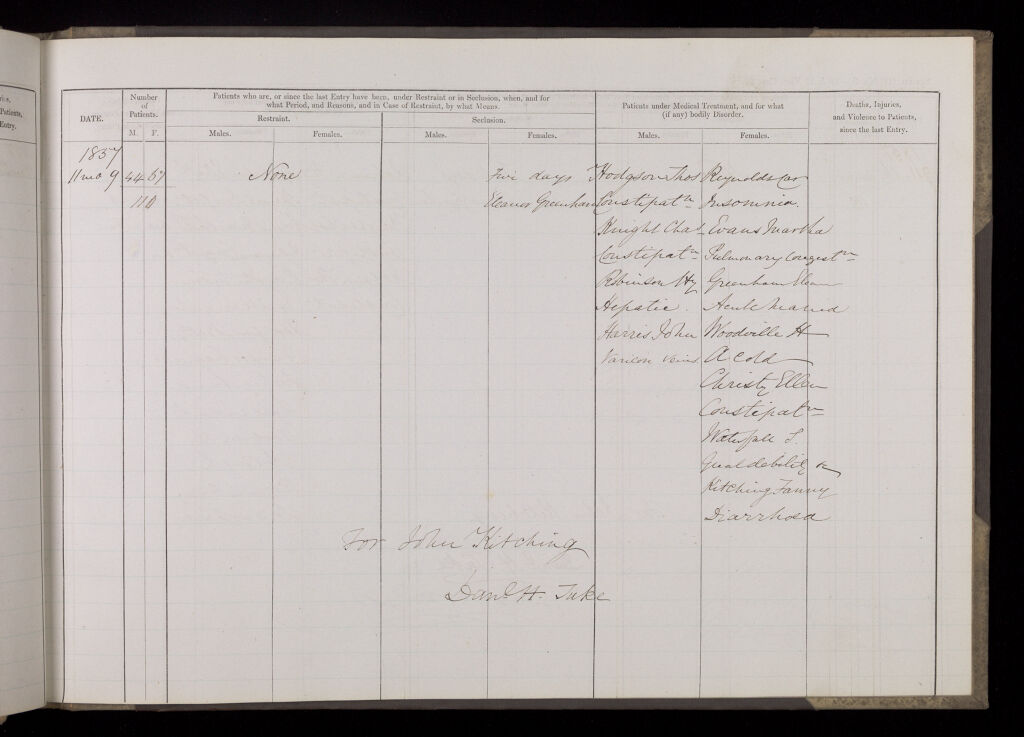 ries,
Patients,
Entry.
DATE.
Number
of
Patients.
M. F.
Patients who are, or since the last Entry have been, under Restraint or in Seclusion, when, and for
what Period, and Reasons, and in Case of Restraint, by what Means.
Restraint.
Seclusion.
Males. Females. Males. Females.
Patients under Medical Treatment, and for what
(if any) bodily Disorder.
Males. Females.
Deaths, Injuries,
and Violence to Patients,
since the last Entry.
1857
11 mo 9 None days Hodgson Thos Reynolds Car
Eleanor Greenham Constipatn Insomnia.
Knight Chas Evans Martha
Constipatn Pulmonary Congestn
Robinson Hy Greenham Elean
Hepatic. Acute Mania
Harris John Woodville H
Veins A cold
Christy Ellen
Constipatn
Waterfall L.
debility
Kitching Fanny
Diarrhoea
For John Kitching
Danl. H. Tuke